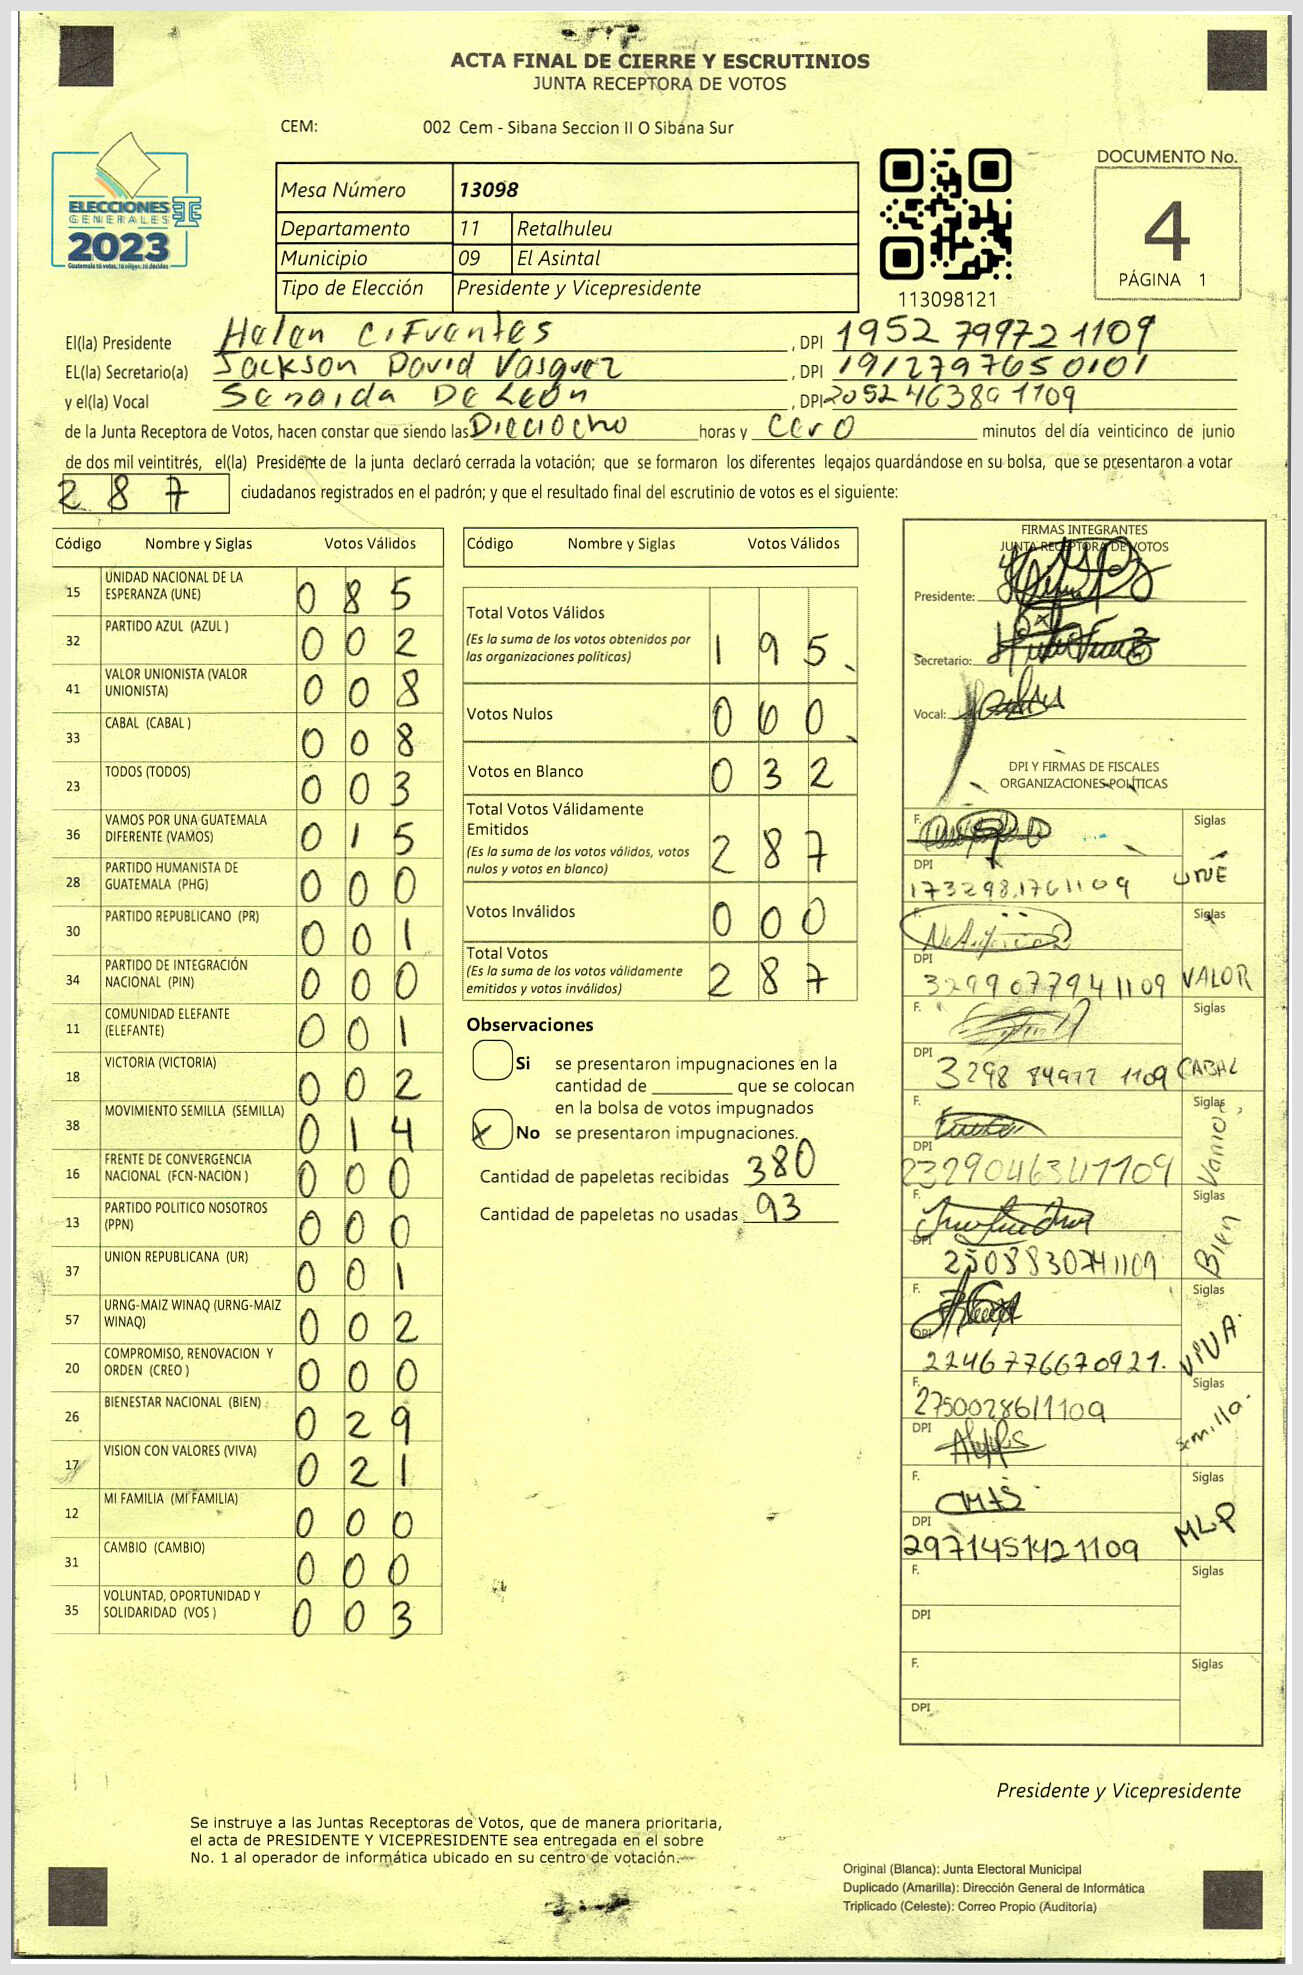 ACTA FINAL DE CIERRE Y ESCRUTINIOS
JUNTA RECEPTORA DE VOTOS
CEM: 002 Cem - Sibana Seccion II O Sibana Sur
ELECCIONES
GENERALES
2023
Mesa Número 13098
Departamento 11 Retalhuleu
Municipio 09 El Asintal
Tipo de Elección Presidente y Vicepresidente
113098121
DOCUMENTO No.
4
PÁGINA 1
El(la) Presidente Helen Cifuentes , DPI 1952 79972 1109
EL(la) Secretario(a) Jackson David Vasquez , DPI 1912797650101
y el(la) Vocal Senaida De León , DPI 2052 46380 1109
de la Junta Receptora de Votos, hacen constar que siendo las Dieciocho horas y cero minutos del día veinticinco de junio
de dos mil veintitrés, el(la) Presidente de la junta declaró cerrada la votación; que se formaron los diferentes legajos guardándose en su bolsa, que se presentaron a votar
287 ciudadanos registrados en el padrón; y que el resultado final del escrutinio de votos es el siguiente:
Código Nombre y Siglas Votos Válidos
15 UNIDAD NACIONAL DE LA ESPERANZA (UNE) 085
32 PARTIDO AZUL (AZUL ) 002
41 VALOR UNIONISTA (VALOR UNIONISTA) 008
33 CABAL (CABAL ) 008
23 TODOS (TODOS) 003
36 VAMOS POR UNA GUATEMALA DIFERENTE (VAMOS) 015
28 PARTIDO HUMANISTA DE GUATEMALA (PHG) 000
30 PARTIDO REPUBLICANO (PR) 001
34 PARTIDO DE INTEGRACIÓN NACIONAL (PIN) 000
11 COMUNIDAD ELEFANTE (ELEFANTE) 001
18 VICTORIA (VICTORIA) 002
38 MOVIMIENTO SEMILLA (SEMILLA) 014
16 FRENTE DE CONVERGENCIA NACIONAL (FCN-NACION ) 000
13 PARTIDO POLITICO NOSOTROS (PPN) 000
37 UNION REPUBLICANA (UR) 001
57 URNG-MAIZ WINAQ (URNG-MAIZ WINAQ) 002
20 COMPROMISO, RENOVACION Y ORDEN (CREO ) 000
26 BIENESTAR NACIONAL (BIEN) 029
17 VISION CON VALORES (VIVA) 021
12 MI FAMILIA (MI FAMILIA) 000
31 CAMBIO (CAMBIO) 000
35 VOLUNTAD, OPORTUNIDAD Y SOLIDARIDAD (VOS ) 003
Código Nombre y Siglas Votos Válidos
Total Votos Válidos
(Es la suma de los votos obtenidos por las organizaciones políticas) 195
Votos Nulos 060
Votos en Blanco 032
Total Votos Válidamente Emitidos
(Es la suma de los votos válidos, votos nulos y votos en blanco) 287
Votos Inválidos 000
Total Votos
(Es la suma de los votos válidamente emitidos y votos inválidos) 287
Observaciones
Si se presentaron impugnaciones en la
cantidad de ________ que se colocan
en la bolsa de votos impugnados
X No se presentaron impugnaciones.
Cantidad de papeletas recibidas 380
Cantidad de papeletas no usadas 93
FIRMAS INTEGRANTES
JUNTA RECEPTORA DE VOTOS
Presidente:
Secretario:
Vocal:
DPI Y FIRMAS DE FISCALES
ORGANIZACIONES POLÍTICAS
F. Siglas
DPI 173298.1761109 UNE
F. Siglas
DPI 3299077941109 VALOR
F. Siglas
DPI 3298 84977 1109 CABAL
F. Siglas
DPI 2329046341109 Vamos
F. Siglas
DPI 2508830741109 Bien
F. Siglas
DPI 2246776670921. VIVA.
F. 2750028611109 Siglas
DPI semilla.
F. Siglas
DPI 2971451421109 MLP
F. Siglas
DPI
F. Siglas
DPI
Presidente y Vicepresidente
Se instruye a las Juntas Receptoras de Votos, que de manera prioritaria,
el acta de PRESIDENTE Y VICEPRESIDENTE sea entregada en el sobre
No. 1 al operador de informática ubicado en su centro de votación.
Original (Blanca): Junta Electoral Municipal
Duplicado (Amarilla): Dirección General de Informática
Triplicado (Celeste): Correo Propio (Auditoría)